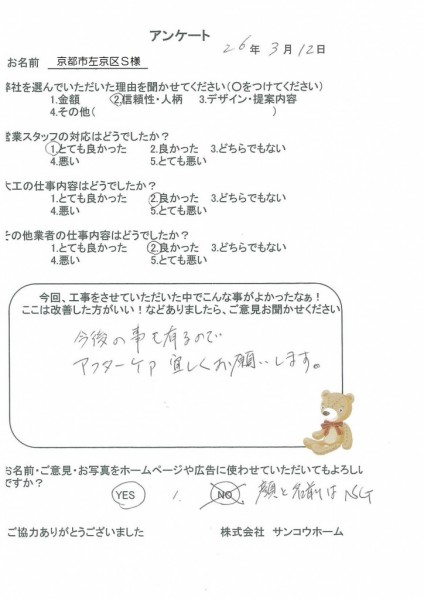 アンケート
26年 3月 12日
お名前 京都市左京区S様
弊社を選んでいただいた理由を聞かせてください(〇をつけてください)
1.金額 2.信頼性・人柄 3.デザイン・提案内容
4.その他( )
営業スタッフの対応はどうでしたか?
1.とても良かった 2.良かった 3.どちらでもない
4.悪い 5.とても悪い
大工の仕事内容はどうでしたか?
1.とても良かった 2.良かった 3.どちらでもない
4.悪い 5.とても悪い
その他業者の仕事内容はどうでしたか?
1.とても良かった 2.良かった 3.どちらでもない
4.悪い 5.とても悪い
今回、工事をさせていただいた中でこんな事がよかったなぁ!
ここは改善した方がいい!などありましたら、ご意見お聞かせください
今後の事も有るので
アフターケア 宜しくお願いします。
お名前・ご意見・お写真をホームページや広告に使わせていただいてもよろしい
ですか?
YES . NO 顔と名前はNG
ご協力ありがとうございました 株式会社 サンコウホーム